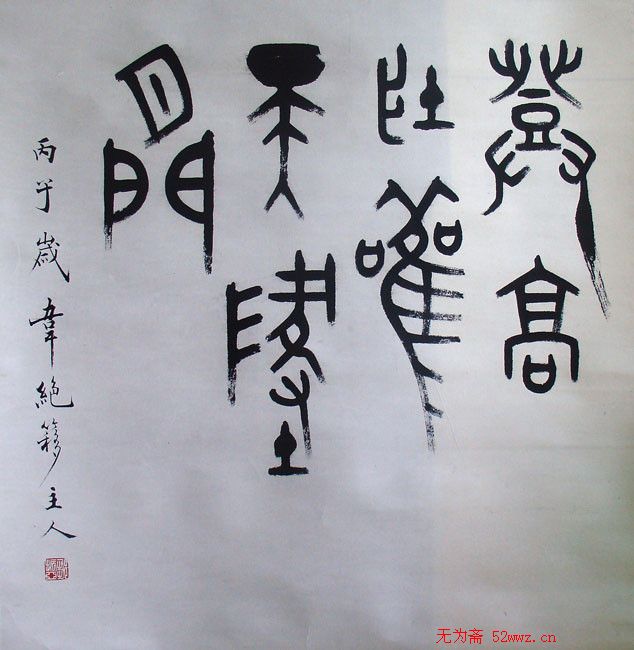 登高
壯觀
天地
間
丙子歲韋絶簃主人
无为斋 52wwz.cn